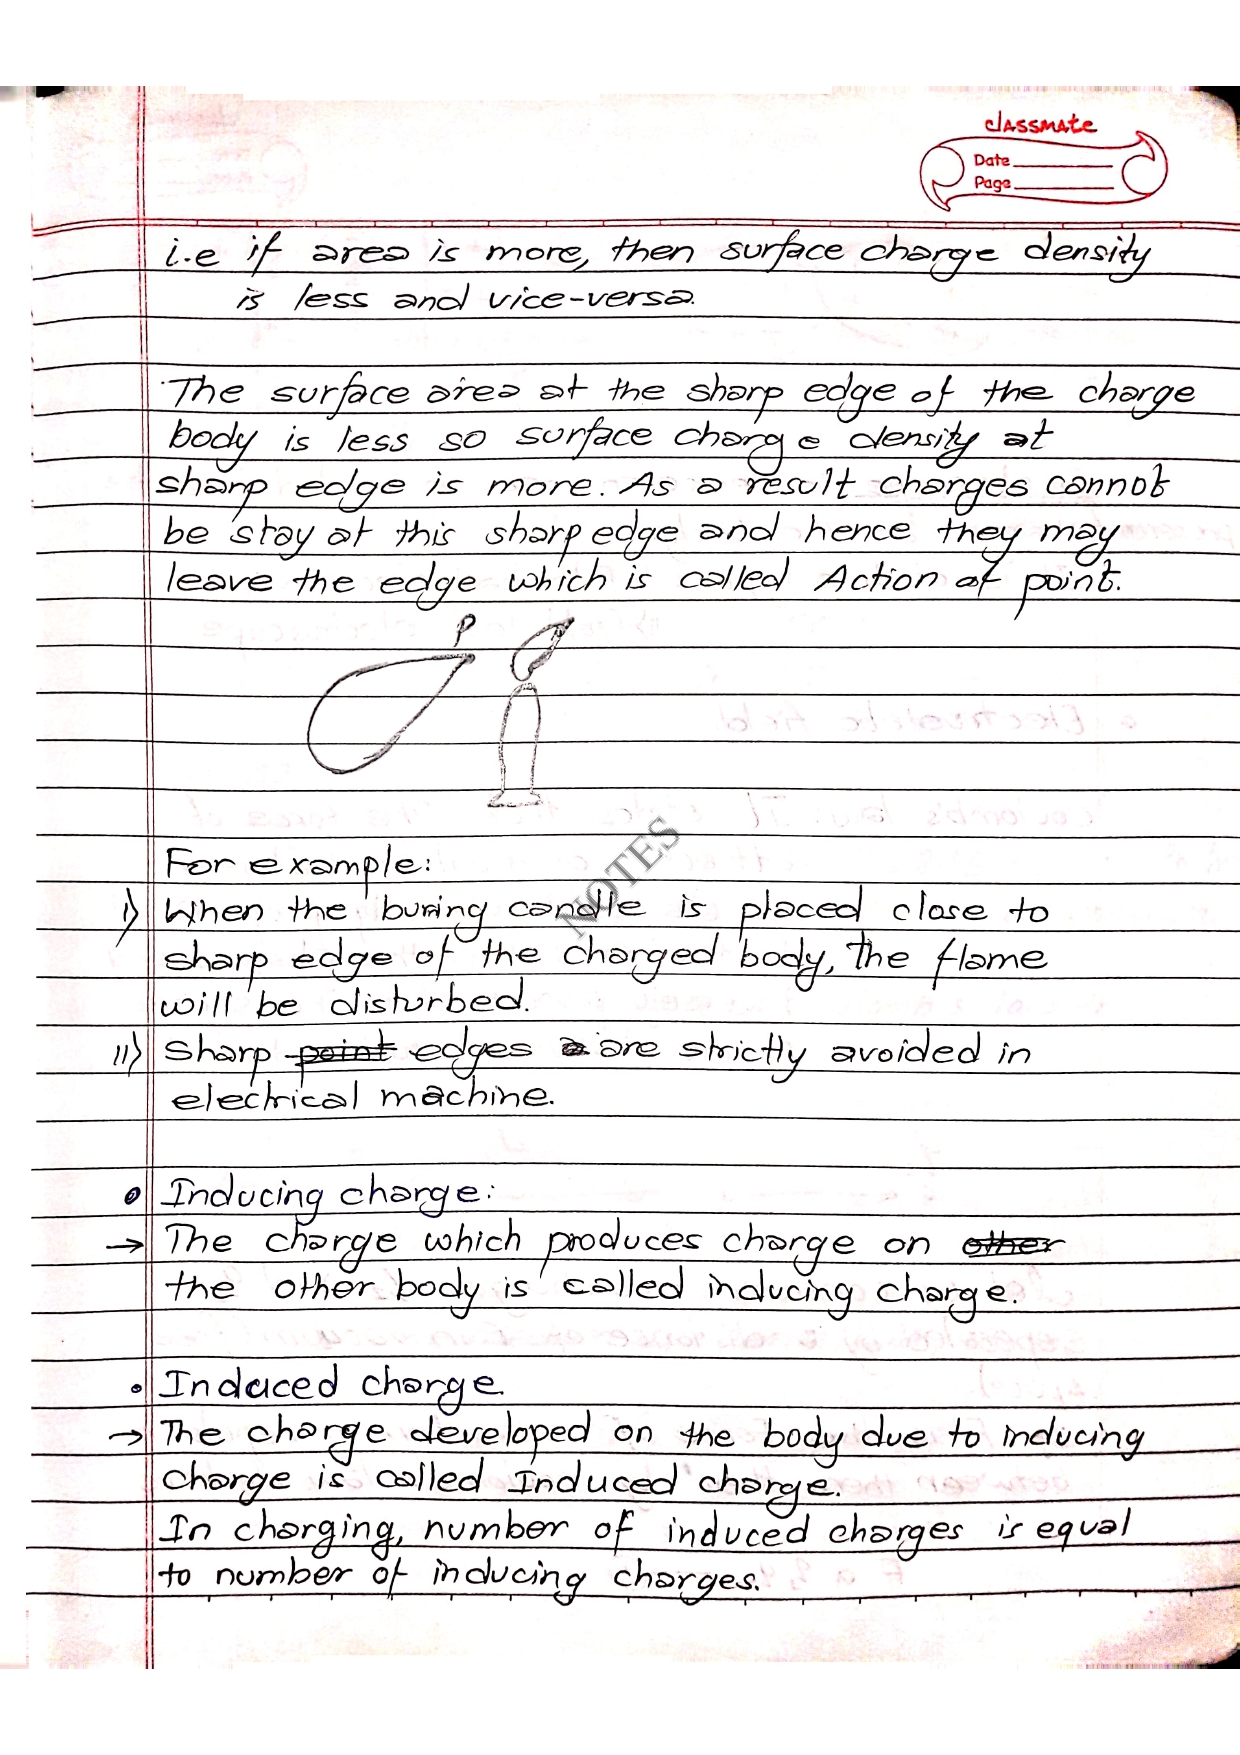 classmate
Date
Page
i.e if area is more, then surface charge density
is less and vice-versa.
The surface area at the sharp edge of the charge
body is less so surface charge density at
sharp edge is more. As a result charges cannot
be stay at this sharp edge and hence they may
leave the edge which is called Action of point.
P
NOTES
For example:
i) When the buring candle is placed close to
sharp edge of the charged body, the flame
will be disturbed.
ii) Sharp point edges are strictly avoided in
electrical machine.
• Inducing charge:
→ The charge which produces charge on other
the other body is called inducing charge.
• Induced charge.
→ The charge developed on the body due to inducing
charge is called Induced charge.
In charging, number of induced charges is equal
to number of inducing charges.